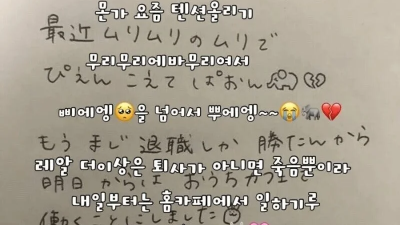 몬가 요즘 텐션올리기
最近ムリムリのムリで
무리무리에바무리여서
ぴえんこえてぱおん
삐에엥🥺을 넘어서 뿌에엥~~😭🐘💔
もうまじ退職しか勝たんから
레알 더이상은 퇴사가 아니면 죽음뿐이라
明日からはおうちカフェで
내일부터는 홈카페에서 일하기루
働くことにしました